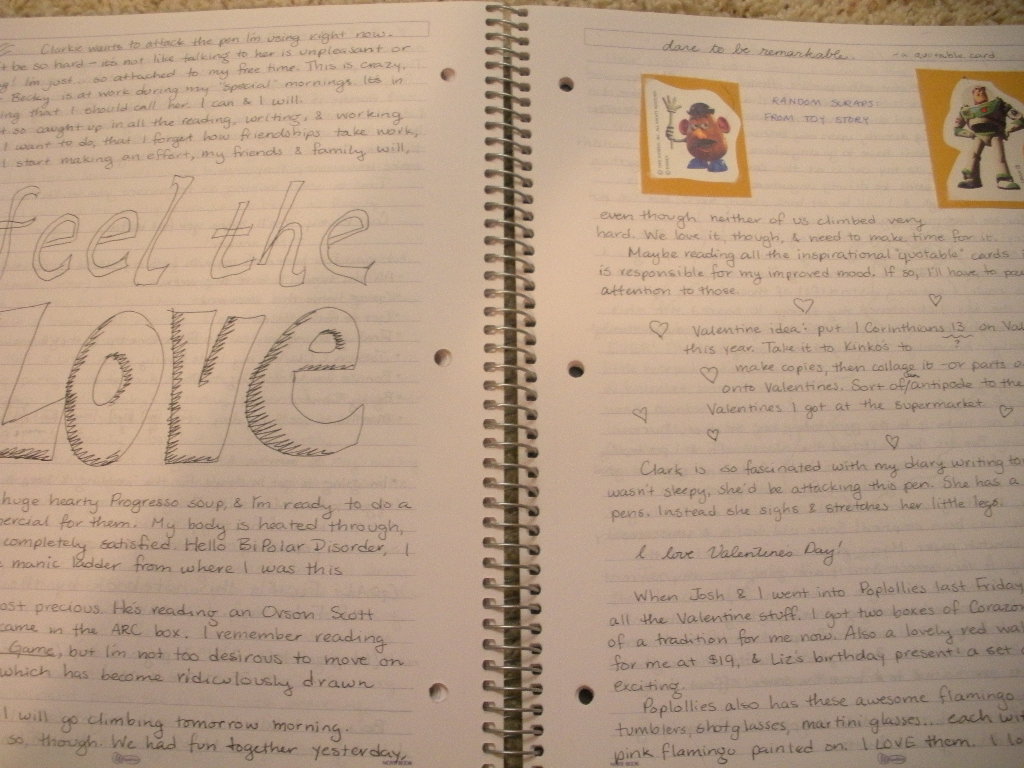 Clarkie wants to attack the pen I'm using right now.
't be so hard - it's not like talking to her is unpleasant or
! I'm just... so attached to my free time. This is crazy,
Becky is at work during my "special" mornings. It's in
ing that I should call her. I can & I will.
t so caught up in all the reading, writing, & working
I want to do, that I forget how friendships take work,
I start making an effort, my friends & family will,
feel the
LOVE
huge hearty Progresso soup, & I'm ready to do a
ercial for them. My body is heated through,
completely satisfied. Hello BiPolar Disorder, I
manic ladder from where I was this
ost precious. He's reading an Orson Scott
came in the ARC box. I remember reading
Game, but I'm not too desirous to move on
which has become ridiculously drawn
I will go climbing tomorrow morning.
so, though. We had fun together yesterday,
dare to be remarkable. - a quotable card
RANDOM SCRAPS
FROM TOY STORY
even though neither of us climbed very
hard. We love it, though, & need to make time for it.
Maybe reading all the inspirational "quotable" cards
is responsible for my improved mood. If so, I'll have to pa
attention to those.
Valentine idea: put 1 Corinthians 13 on Val
?
this year. Take it to Kinko's to
make copies, then collage it - or parts o
onto Valentines. Sort of an antipode to the
Valentines I got at the supermarket.
Clark is so fascinated with my diary writing to
wasn't sleepy, she'd be attacking this pen. She has a
pens. Instead she sighs & stretches her little legs.
I love Valentines Day!
When Josh & I went into Poplollies last Friday
all the Valentine stuff. I got two boxes of Corazon
of a tradition for me now. Also a lovely red wal
for me at $19, & Liz's birthday present: a set o
exciting.
Poplollies also has these awesome flamingo
tumblers, shotglasses, martini glasses... each wit
pink flamingo painted on. I LOVE them. I lo